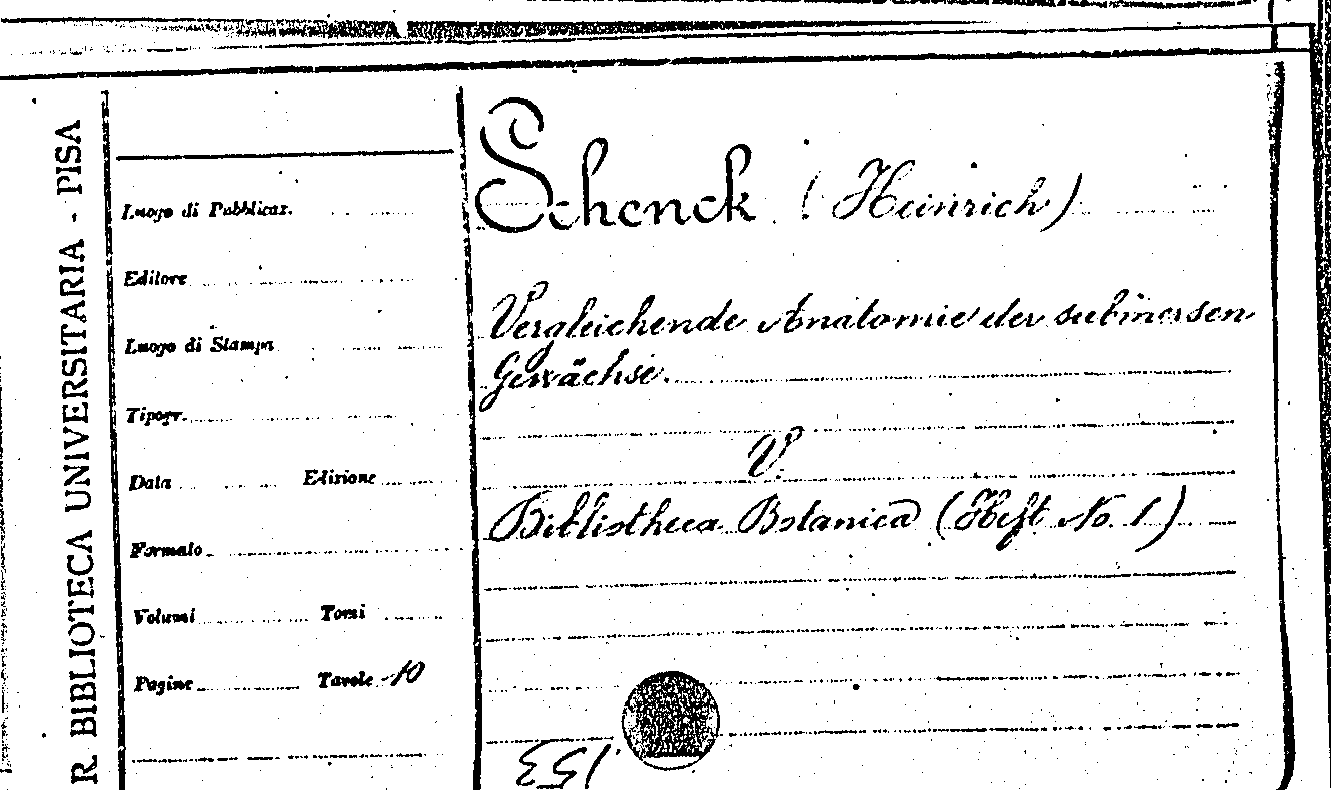 R. BIBLIOTECA UNIVERSITARIA - PISA
Luogo di Pubblicaz.
Editore
Luogo di Stampa
Tipogr.
Data Edizione
Formato
Volumi Tomi
Pagine Tavole 10
Schenck (Heinrich)
Vergleichende Anatomie der submersen
Gewächse.
V.
Bibliotheca Botanica (Heft No. 1)
153